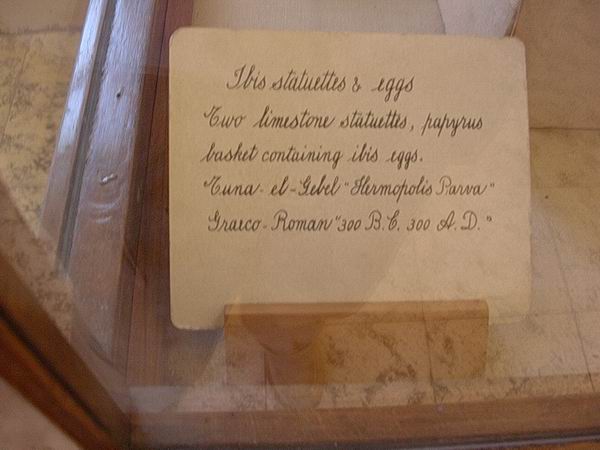 Ibis statuettes & eggs
Two limestone statuettes, papyrus
basket containing ibis eggs.
Tuna-el-Gebel "Hermopolis Parva"
Graeco-Roman "300 B.C. 300 A.D."